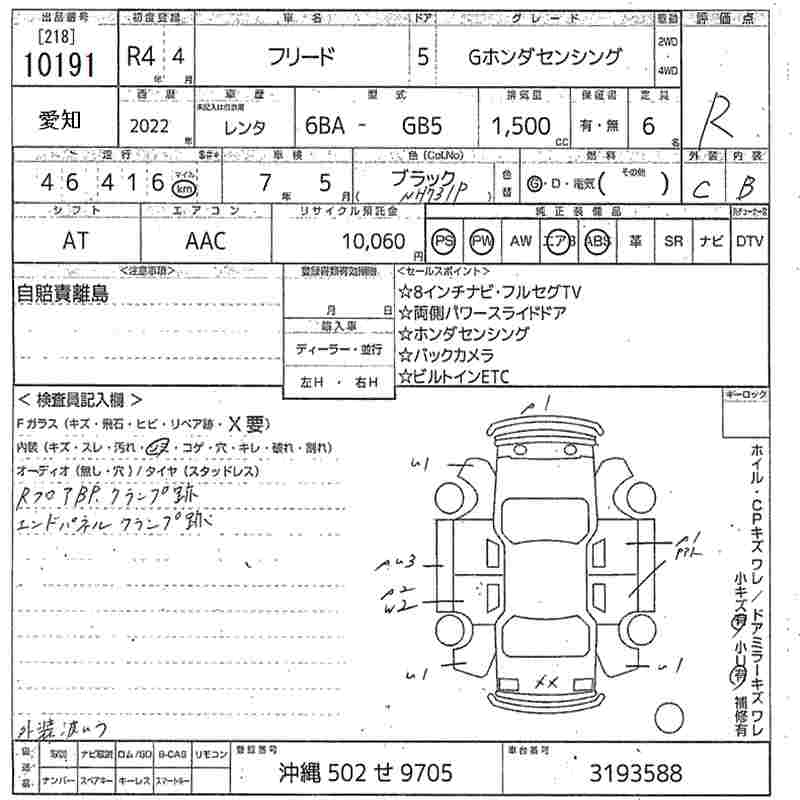 出品番号 初度登録 車名 ドア グレード 駆動 評価点
[218]
10191 R4 年 4 月 フリード 5 Gホンダセンシング 2WD・4WD R
愛知 西暦 車歴 型式 排気量 保証書 定員
未記入は自家用
2022 年 レンタ 6BA - GB5 1,500 CC 有・無 6 名
走行 車検 色(Col.No) 燃料 外装 内装
46416 マイル km 7 年 5 月 ブラック (NH731P) 色替 G・D・電気 (その他) C B
シフト エアコン リサイクル預託金 純正装備品
AT AAC 10,060 円 PS PW AW エアB ABS 革 SR ナビ DTV
<注意事項> 登録書類有効期限 <セールスポイント>
自賠責離島 月 日 ☆8インチナビ・フルセグTV
☆両側パワースライドドア
輸入車 ☆ホンダセンシング
ディーラー・並行 ☆バックカメラ
左H ・ 右H ☆ビルトインETC
< 検査員記入欄 > キーロック
Fガラス (キズ・飛石・ヒビ・リペア跡・X要)
内装 (キズ・スレ・汚れ・シミ・コゲ・穴・キレ・破れ・割れ)
オーディオ (無し・穴) / タイヤ (スタッドレス)
RフロアBP.クランプ跡
エンドパネル クランプ跡
外装波いう
A1
U1
AU3
A2
W2
A1
U1
U1
XX
ホイル・CPキズ ワレ / ドアミラーキズ ワレ
小キズ有 / 小U有 補修有
取説 ナビ取説 ロム/SD B-CAS リモコン 登録番号 車台番号
ナンバー スペアキー キーレス スマートキー 沖縄 502 せ 9705 3193588